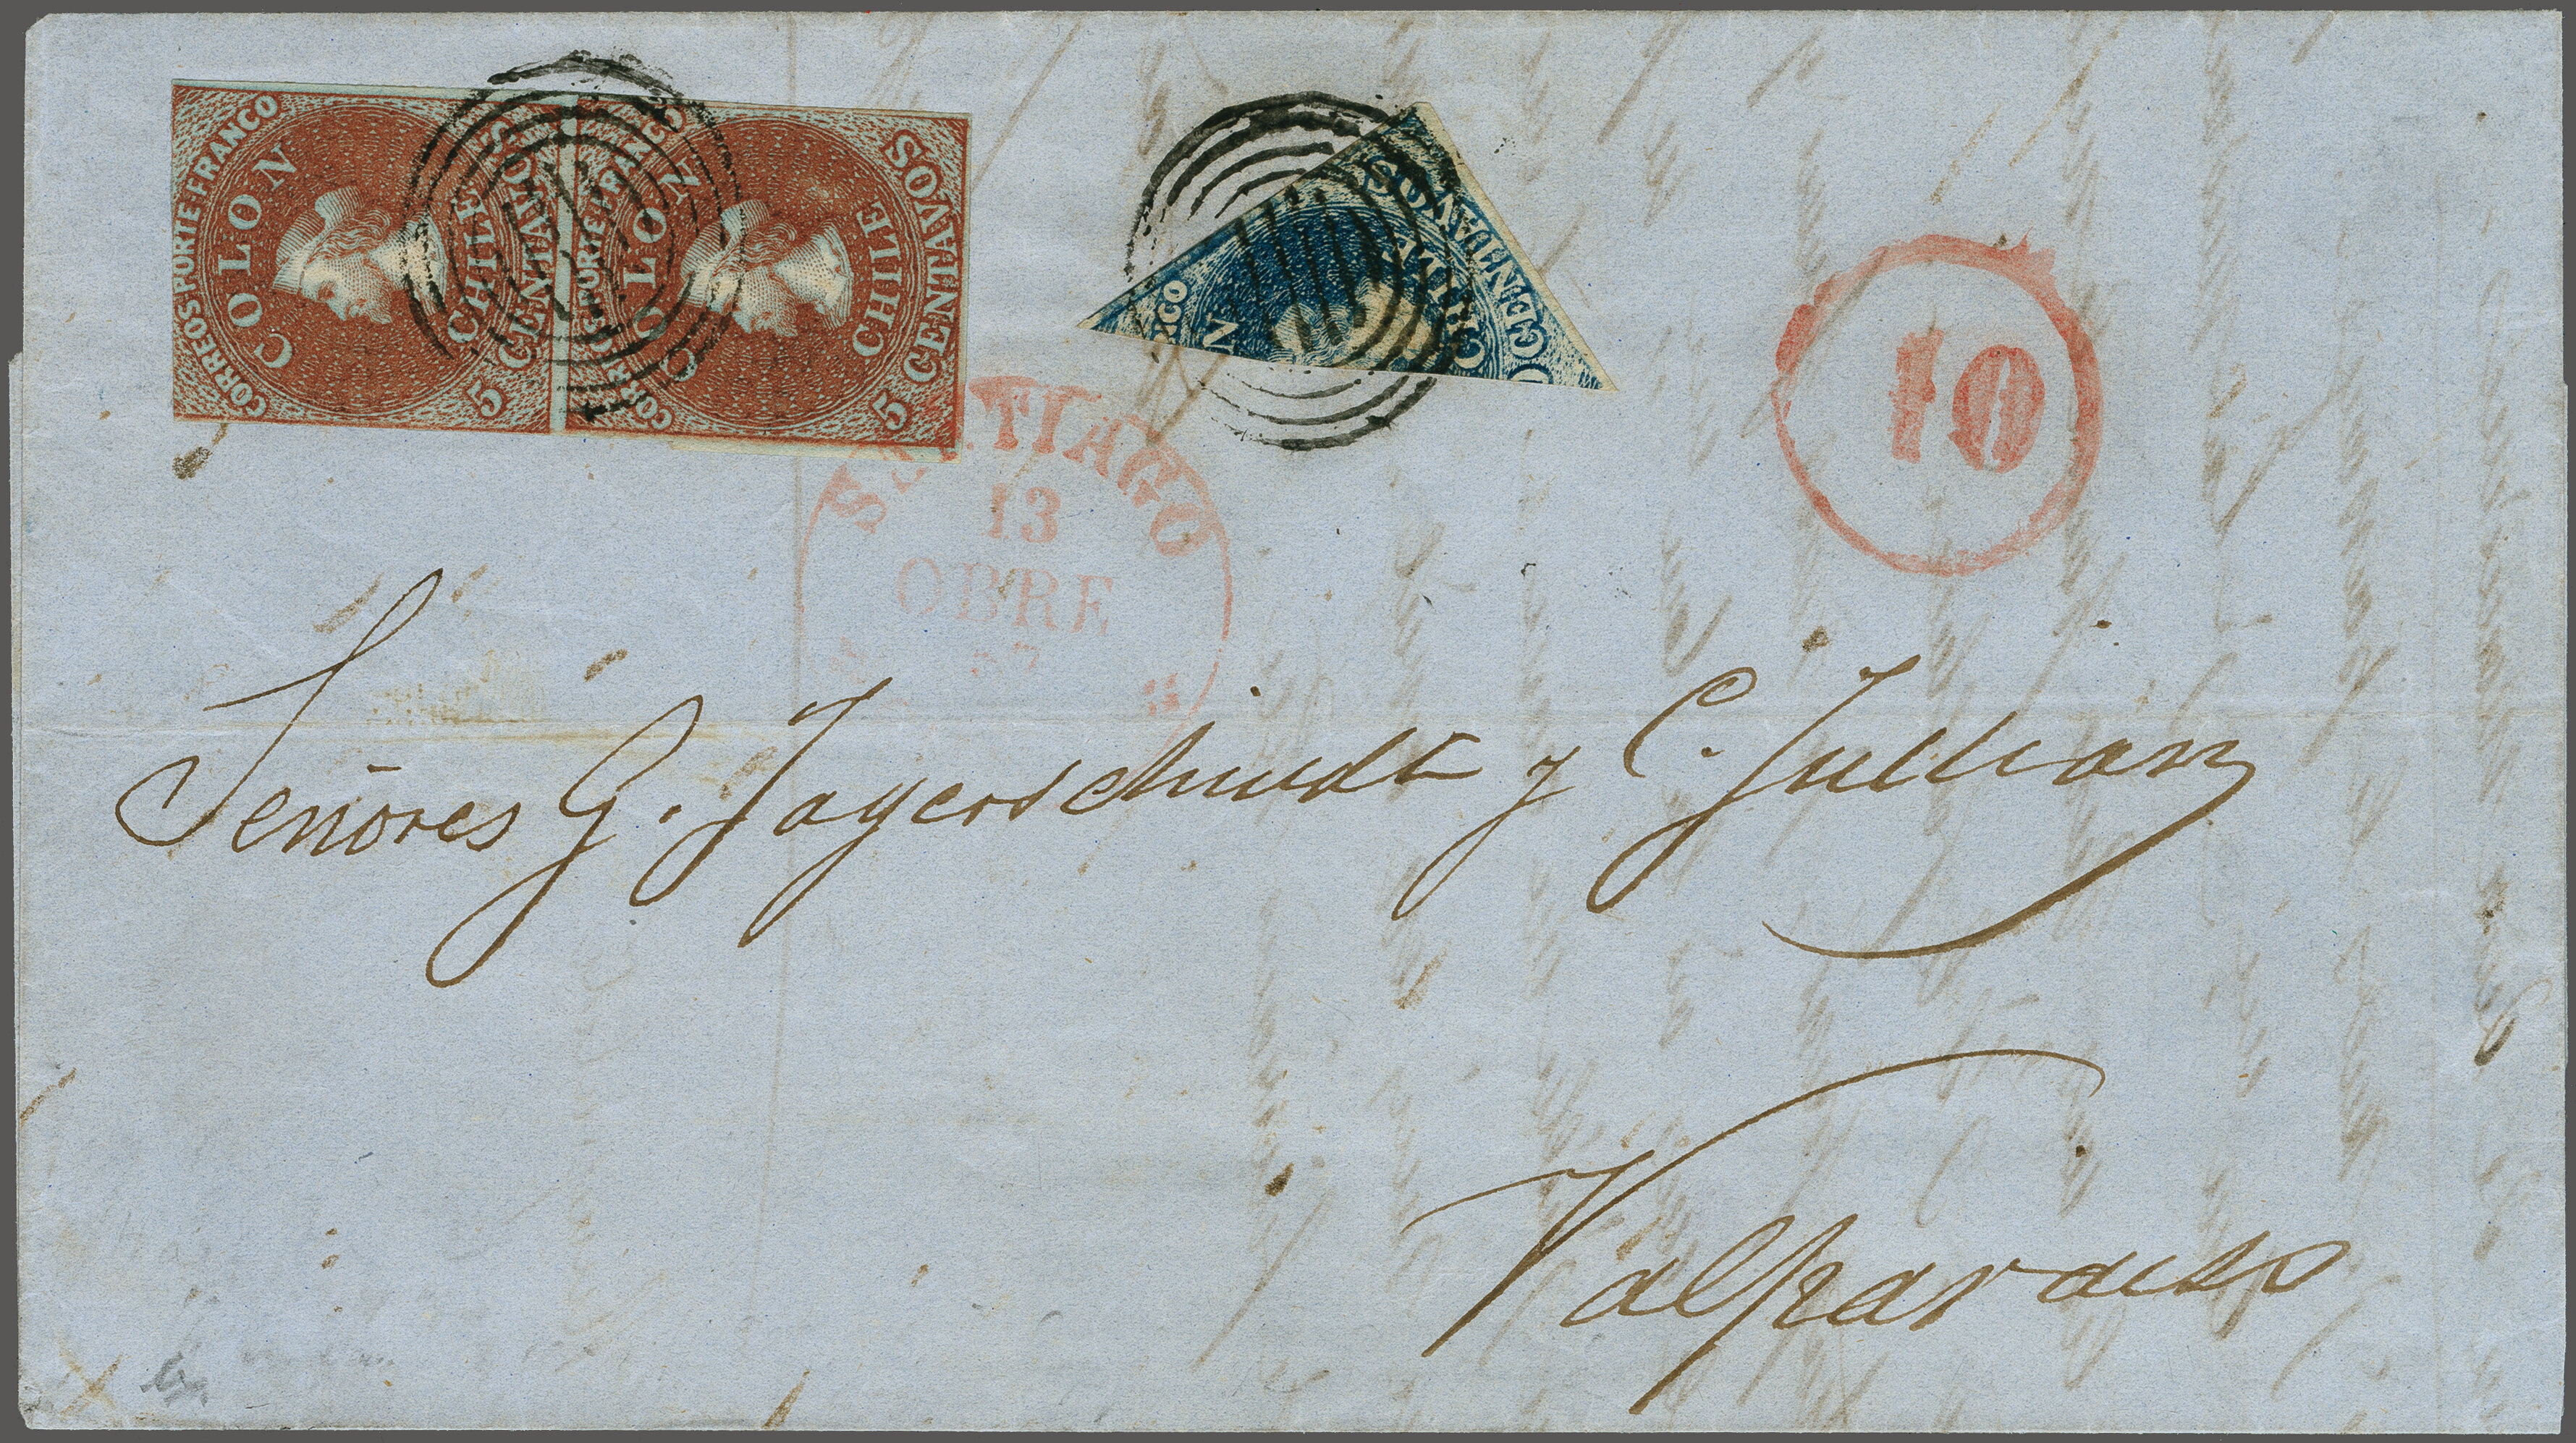 CORREOS PORTE FRANCO
COLON
CHILE
5 CENTAVOS
CORREOS PORTE FRANCO
COLON
CHILE
5 CENTAVOS
NCO
N
CHILE
CENTAVOS
10
SANTIAGO
13
OBRE
57
Señores G. Jagerschmidt y C. Jullian
Valparaiso